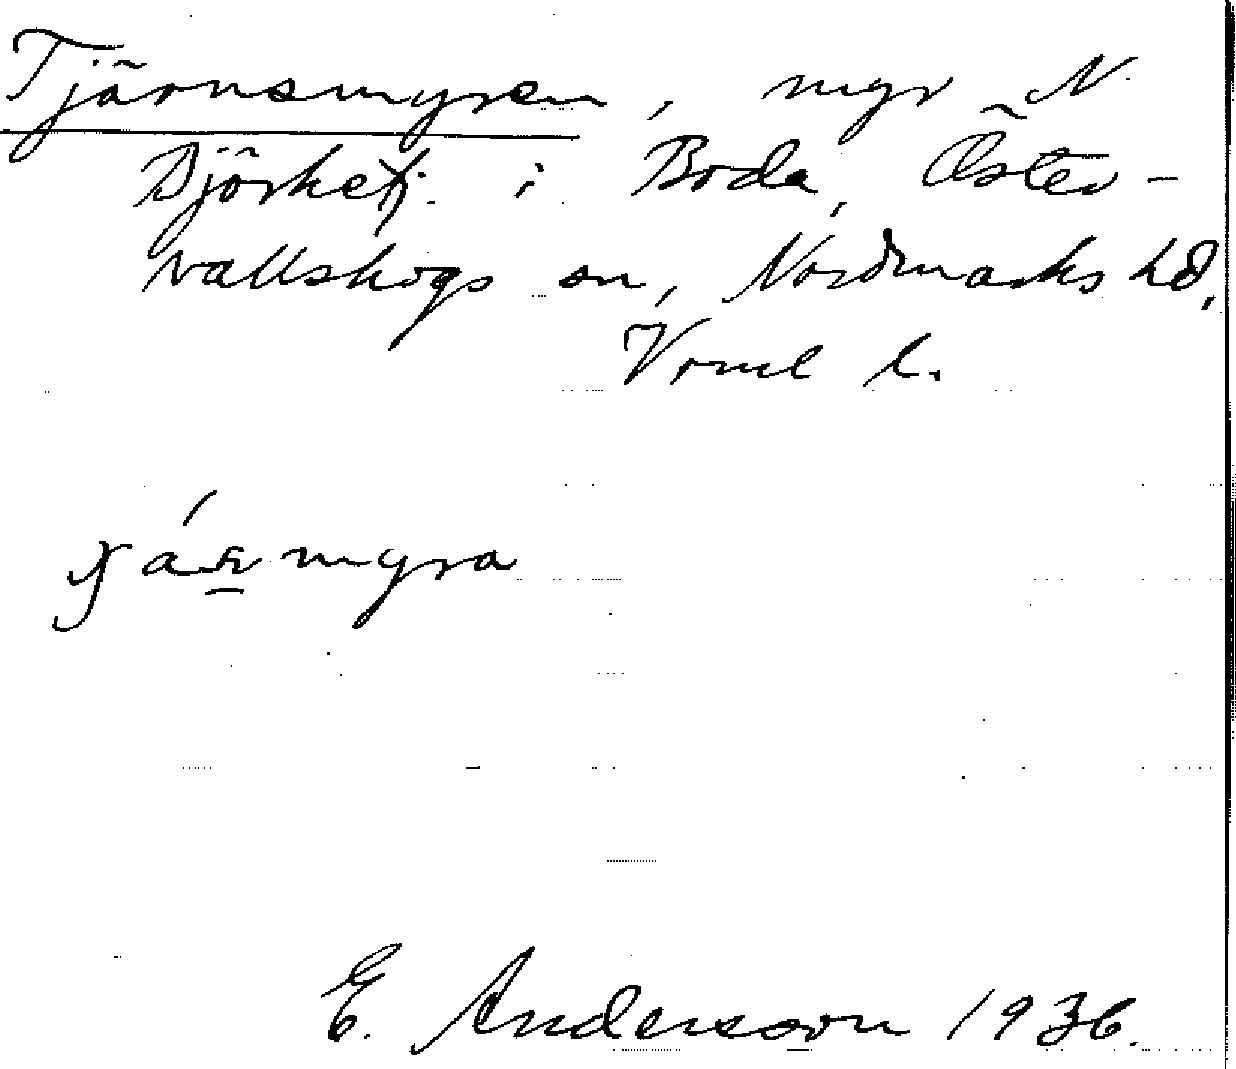 Tjärnsmyren, myr N.
Björket i Boda, Öster-
vallskogs sn, Nordmarks hd,
Vrml l.
myra
E. Anderson 1936.